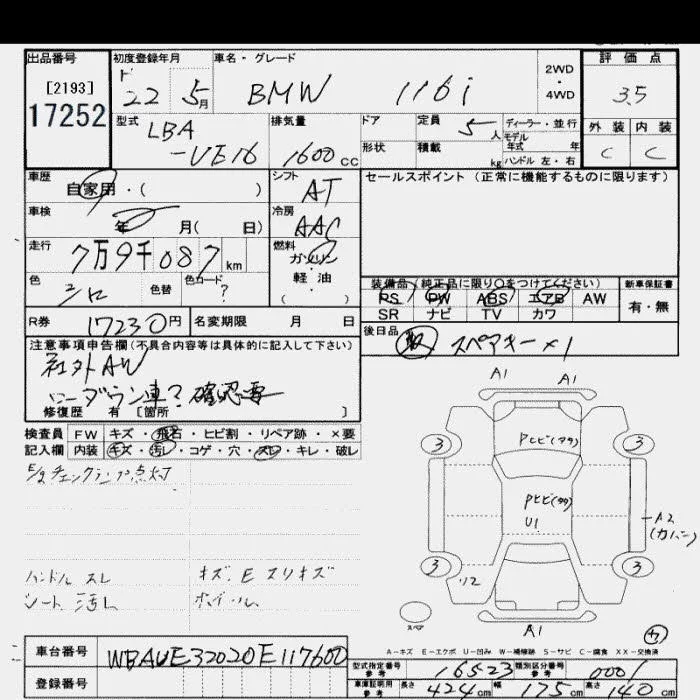 出品番号 初度登録年月 車名・グレード 2WD・4WD 評価点
[2193] 22 5月 BMW 116i 3.5
17252
型式 LBA-VE16 排気量 1600CC ドア 定員 5人 ディーラー・並行 外装 内装
形状 積載 kg モデル年式 年 C C
ハンドル 左・右
車歴 自家用・( ) シフト AT セールスポイント (正常に機能するものに限ります)
車検 年 月( 日) 冷房 AAC
走行 7万9千087km 燃料 ガソリン
軽油
( )
色 シロ 色替 色カード ? 装備品 (純正品に限り○をつけてください) 新車保証書
PS PW ABS エアB AW 有・無
SR ナビ TV カワ
R券 17230円 名変期限 月 日 後日品 取 スペアキー×1
注意事項申告欄(不具合内容等は具体的に記入して下さい)
社外AW
ローダウン車? 確認要
修復歴 有 [箇所 ]
A1 A1
検査員 FW キズ・飛石・ヒビ割・リペア跡・×要
記入欄 内装 キズ・汚し・コゲ・穴・スレ・キレ・破レ
E/gチェックランプ点灯
3 Pヒビ(タタ) 3
Pヒビ(タタ)
U1
A2
(カハン)
ハンドル スレ キズ、E スリキズ
シート 汚レ ホイール
3 3
ソ2
スペア
A1
A-キズ E-エクボ U-凹み W-補修跡 S-サビ C-腐食 XX-交換済
車台番号 WBAUE32020E117600
型式指定番号 参考 16523 類別区分番号 参考 0001
登録番号 車庫証明用 参考 長さ 424cm 幅 175cm 高さ 140cm